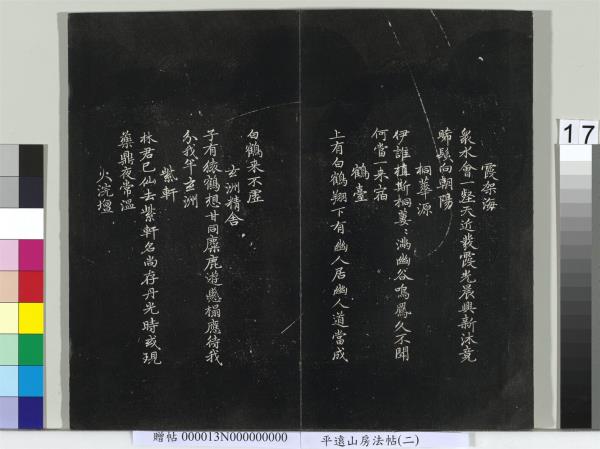 霞架海
衆水會一壑天近發霞光晨興新沐竟
晞髮向朝陽
桐華源
伊誰植斯桐萋萋滿幽谷鳴鳳久不聞
何當一来宿
鶴臺
上有白鶴翔下有幽人居幽人道當成
白鶴来不虛
玄洲精舍
子有猿鶴想甘同麋鹿遊懸榻應待我
分我半玄洲
紫軒
林君已仙去紫軒名尚存丹光時或現
藥鼎夜常溫
火浣壇
17
贈帖 000013N000000000
平遠山房法帖(二)